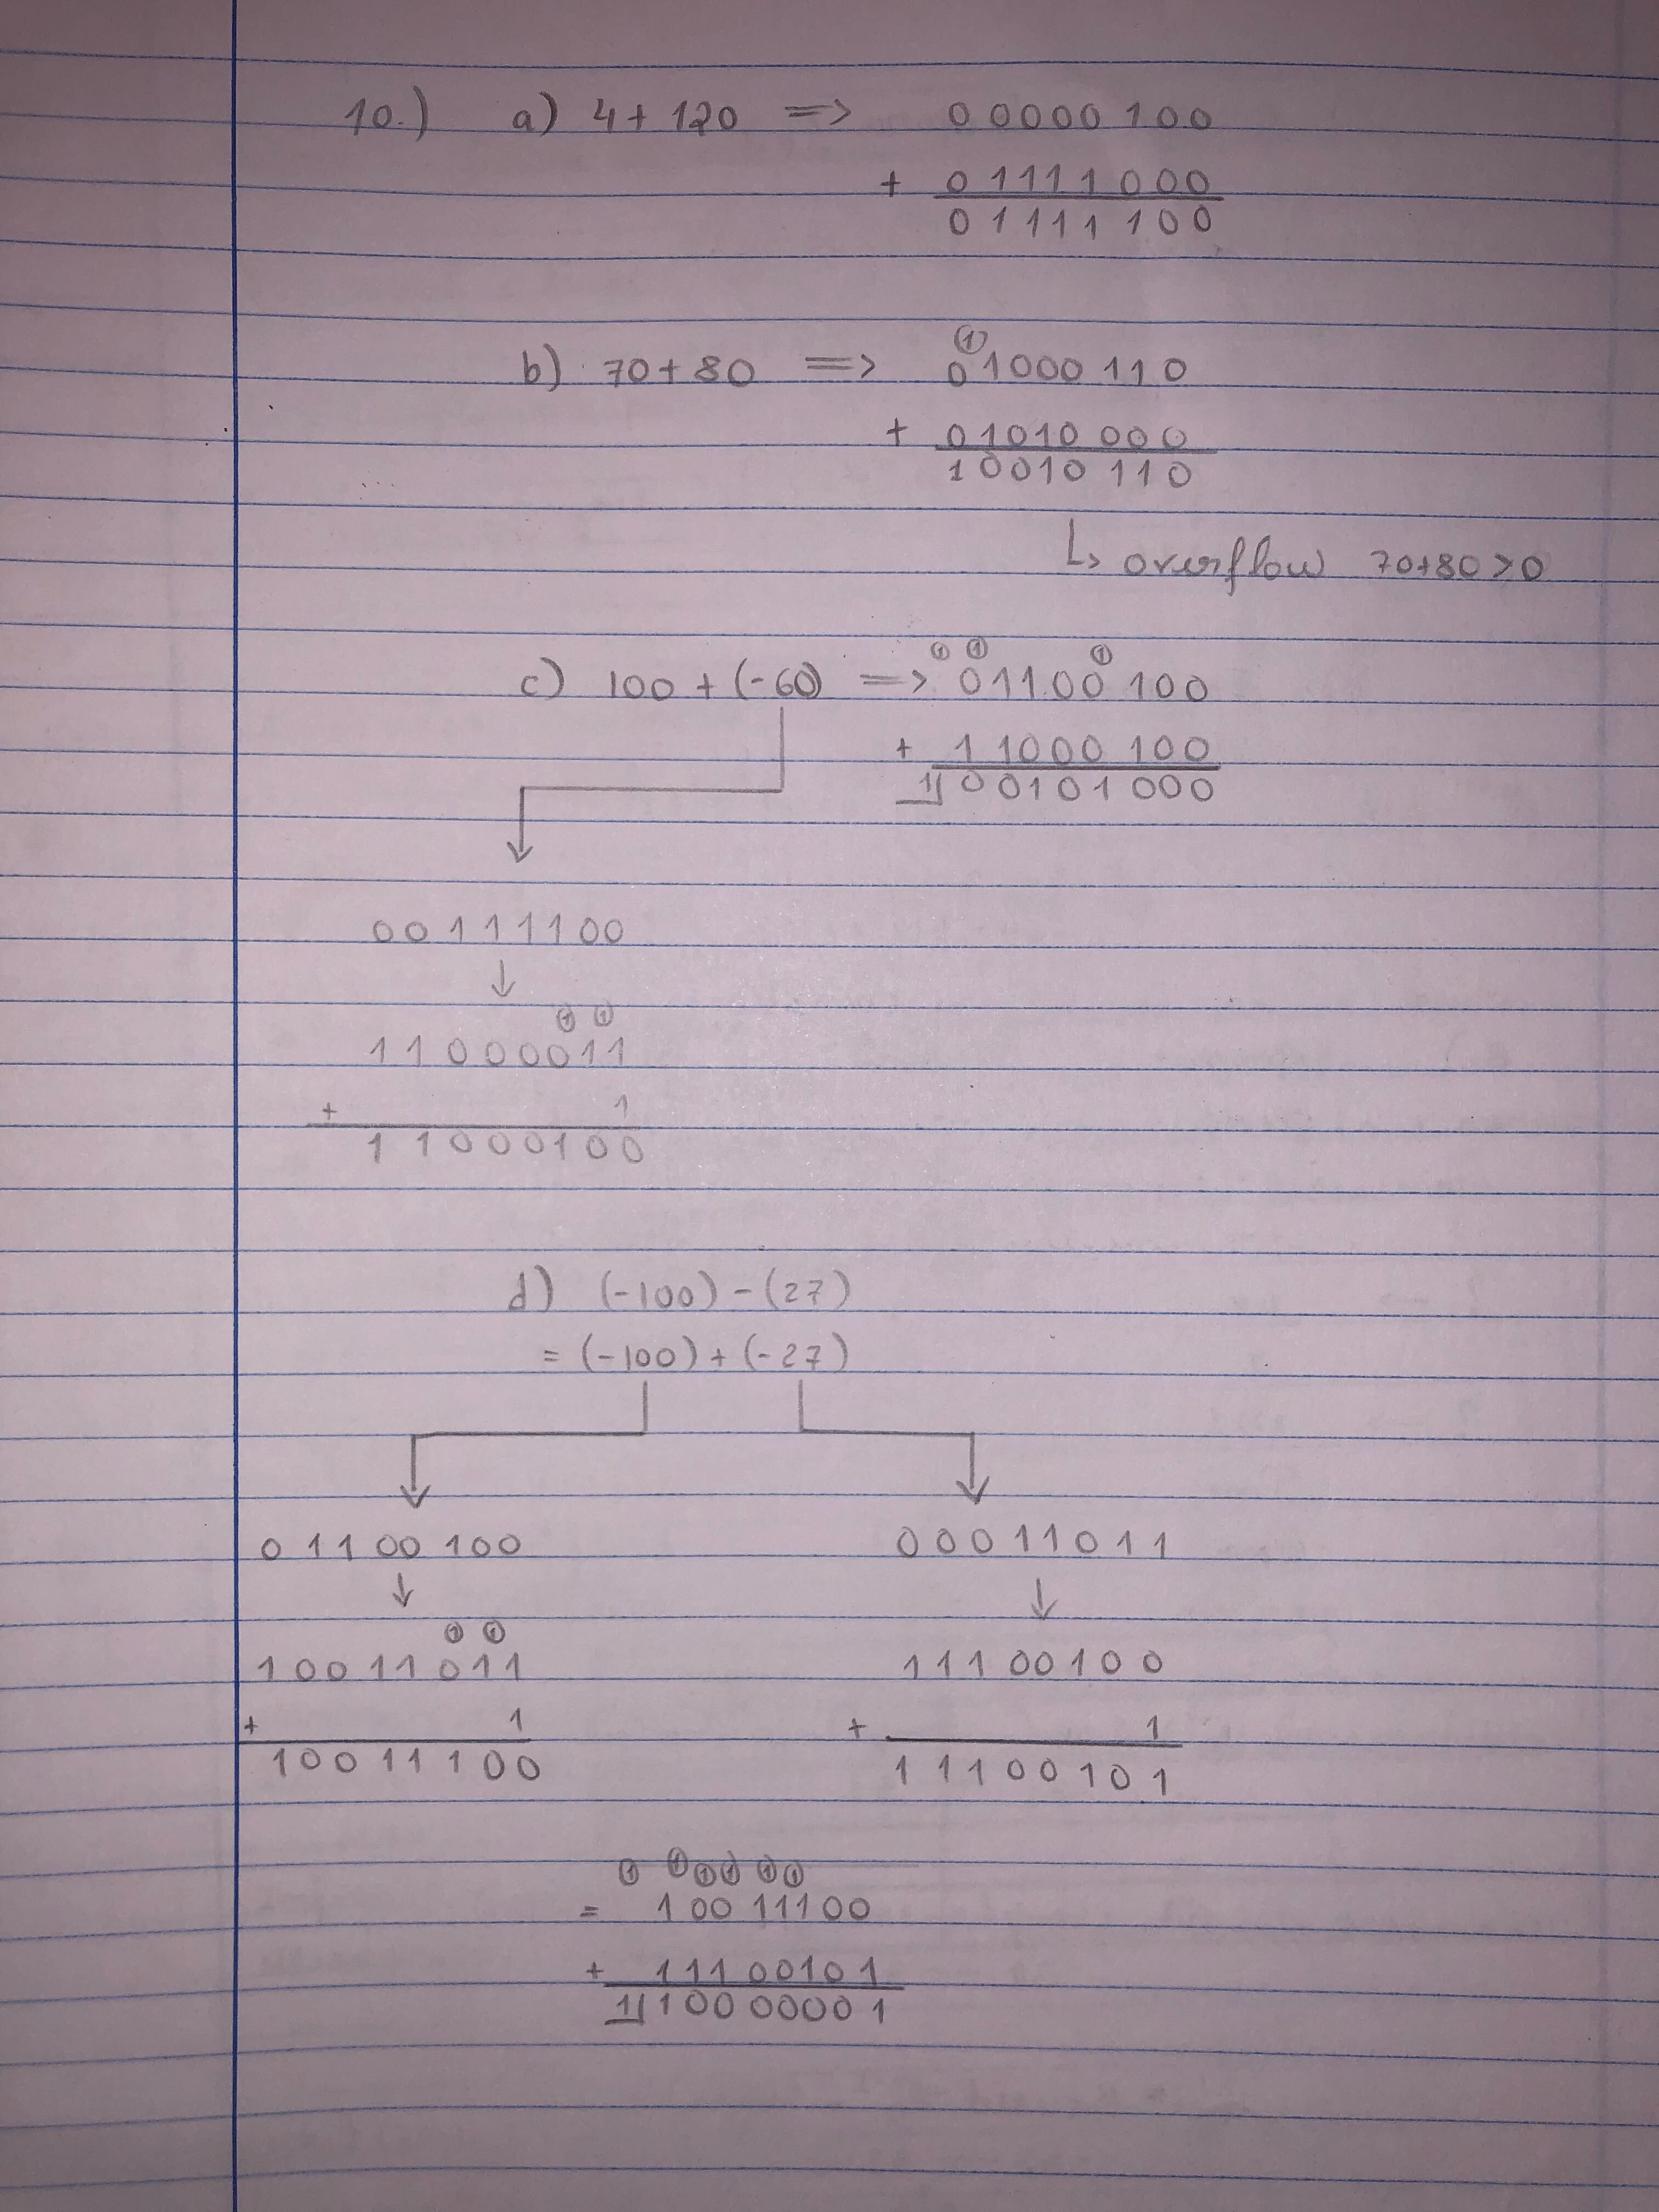 10.) a) 4+120 => 00000100
+ 01111000
01111100
①
b) 70+80 => 01000110
+ 01010000
10010110
↳ overflow 70+80>0
① ① ①
c) 100+(-60) => 01100100
+ 11000100
1|00101000
00111100
↓
① ①
11000011
+ 1
11000100
d) (-100)-(27)
= (-100)+(-27)
01100100 00011011
↓ ↓
① ①
10011011 11100100
+ 1 + 1
10011100 11100101
① ① ① ① ① ①
= 10011100
+ 11100101
1|10000001